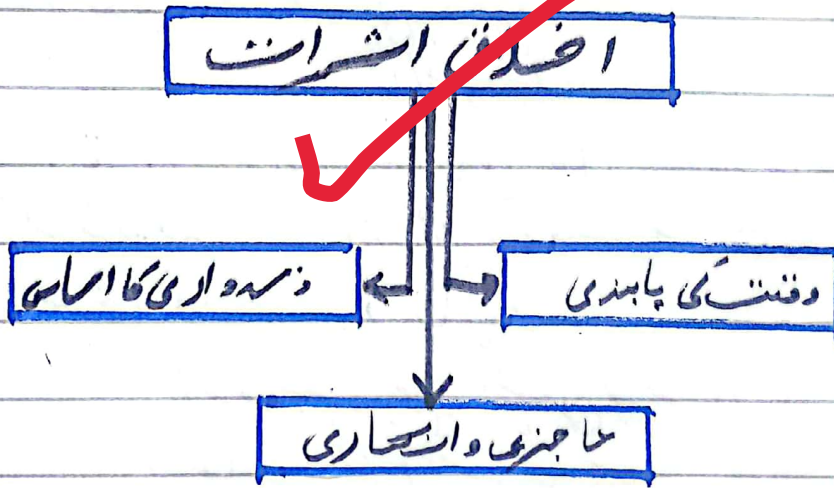 اخلاقی اثرات
وقت کی پابندی
ذمہ داری کا احساس
عاجزی و انکساری